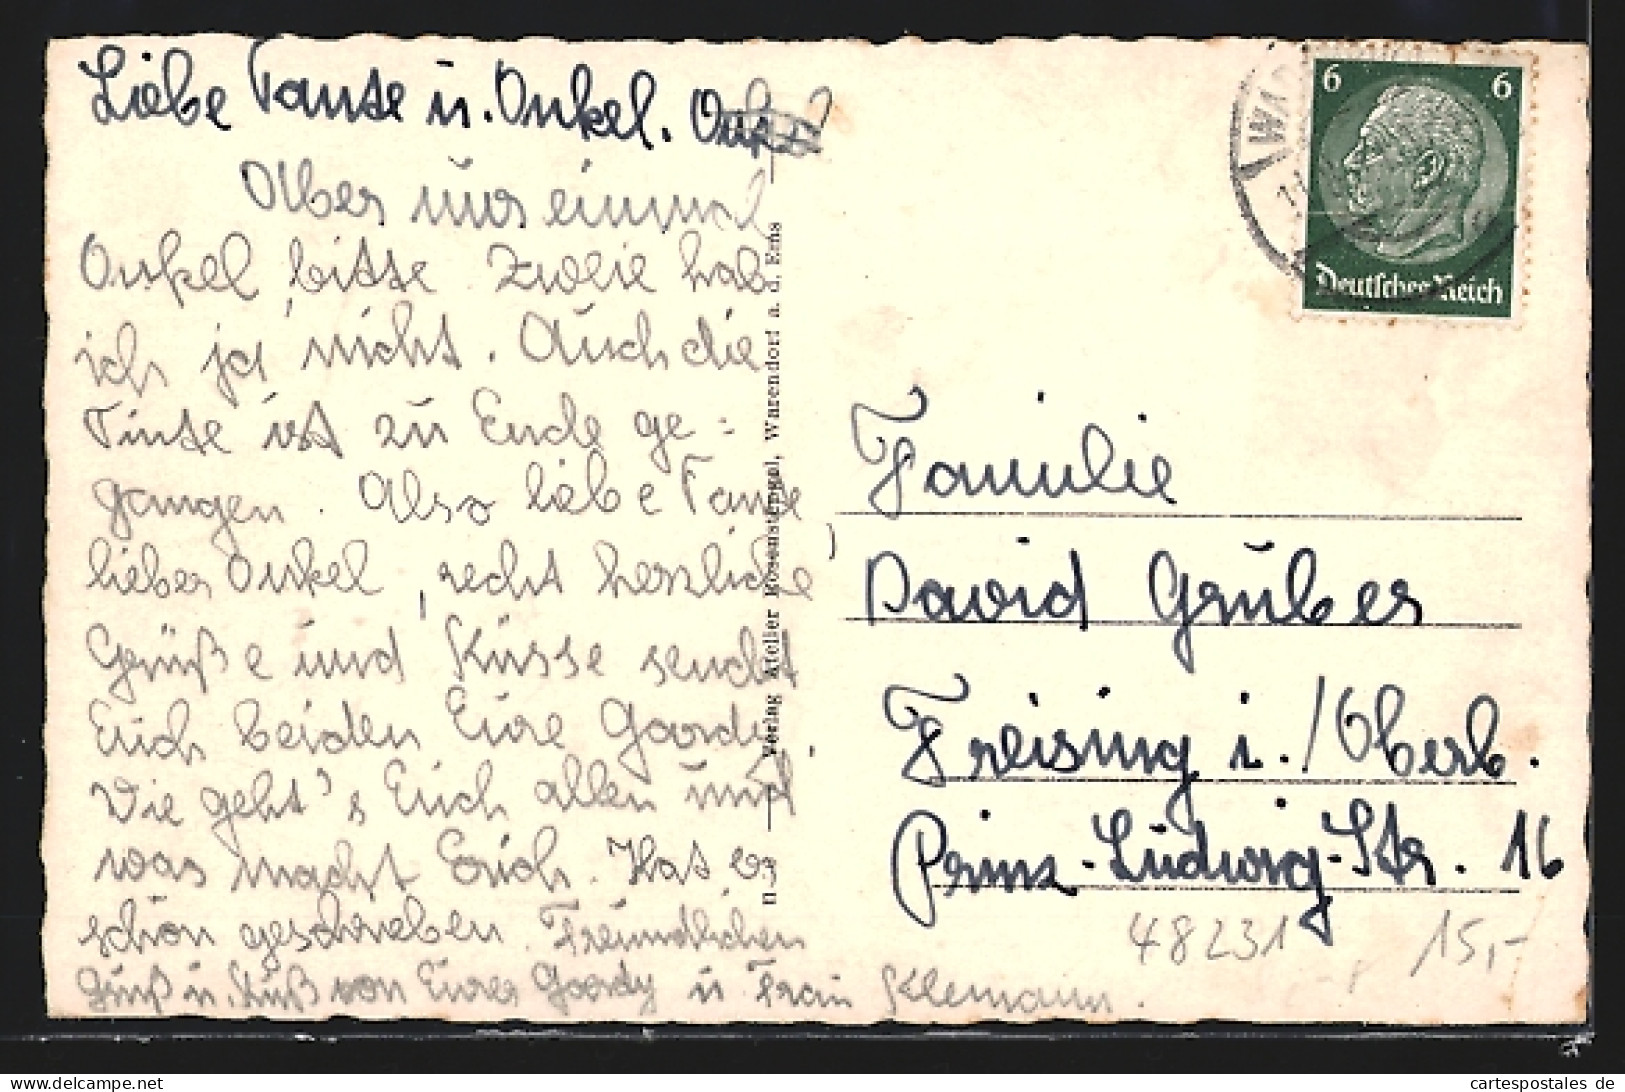 Liebe Tante u. Onkel.
Aber nur einmal
Onkel, bitte. Zweie hab
ich ja nicht. Auch die
Tinte ist zu Ende ge=
gangen. Also liebe Tante,
lieber Onkel, recht herzliche
Grüße und Küsse sendet
Euch beiden Eure Goordy.
Wie geht's Euch allen und
was macht Erich. Hat er
schön geschrieben. Freundlichen
Gruß u. Kuß von Eurer Goordy u Frau Klemann.
n 3 Verlag Atelier Rosenstengel, Warendorf a. d. Ems
6 6
Deutsches Reich
WAR
Familie
David Gruber
Freising i./Oberb.
Prinz-Ludwig-Str. 16
48231 15,-
cartespostales de